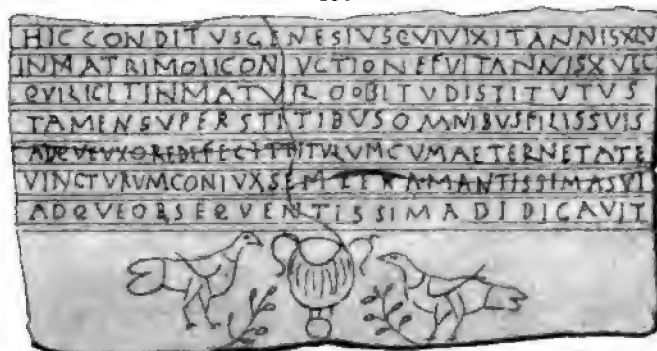 HIC CONDITVSGENESIVSQVIVIXITANNISXLV
INMATRIMOIICON VCTIONEFVITANNISXVIII
QVILICLTINMATVR OOBITVDISTITVTVS
TAMENSVPERSTITIBVSOMNIBVSFILISSVIS
ADQVEVXOREDEFECITBITVRVMCVMAETERNETATE
VINCTVRVMCONIVXSEMPERAMANTISSIMASVI
ADQVEOBSEQVENTISSIMADIDICAVIT